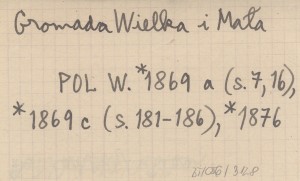 Gromada Wielka i Mała
POL W. *1869 a (s. 7, 16),
*1869 c (s. 181-186), *1876